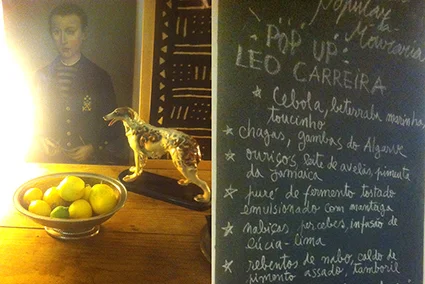 popular
da
Mouraria
POP UP
LEO CARREIRA
* Cebola, beterraba marinha,
toucinho
* chagas, gambas do Algarve
* ouriços, leite de avelas, pimenta
da Jamaica
* puré de fermento tostado
emulsionado com manteiga
* nabiças, percebes, infusão de
lúcia-lima
* rebentos de nabo, caldo de
pimento assado, tamboril